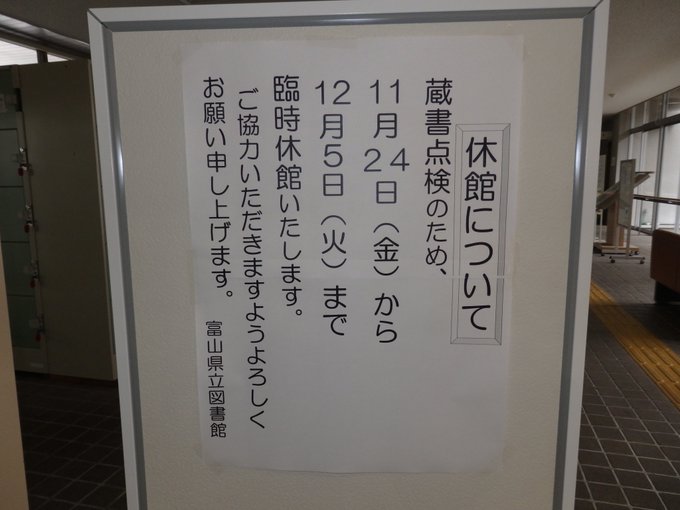 休館について
蔵書点検のため、
11月24日（金）から
12月5日（火）まで
臨時休館いたします。
ご協力いただきますようよろしく
お願い申し上げます。
富山県立図書館